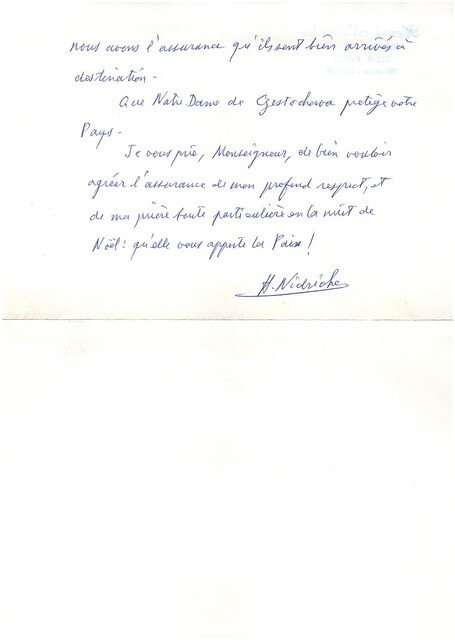 nous avons l'assurance qu'ils sont bien arrivés à
destination -
Que Notre Dame de Czestochowa protège votre
Pays -
Je vous prie, Monseigneur, de bien vouloir
agréer l'assurance de mon profond respect, et
de ma prière toute particulière en la nuit de
Noël : qu'elle vous apporte la Paix !
H. Nidriche